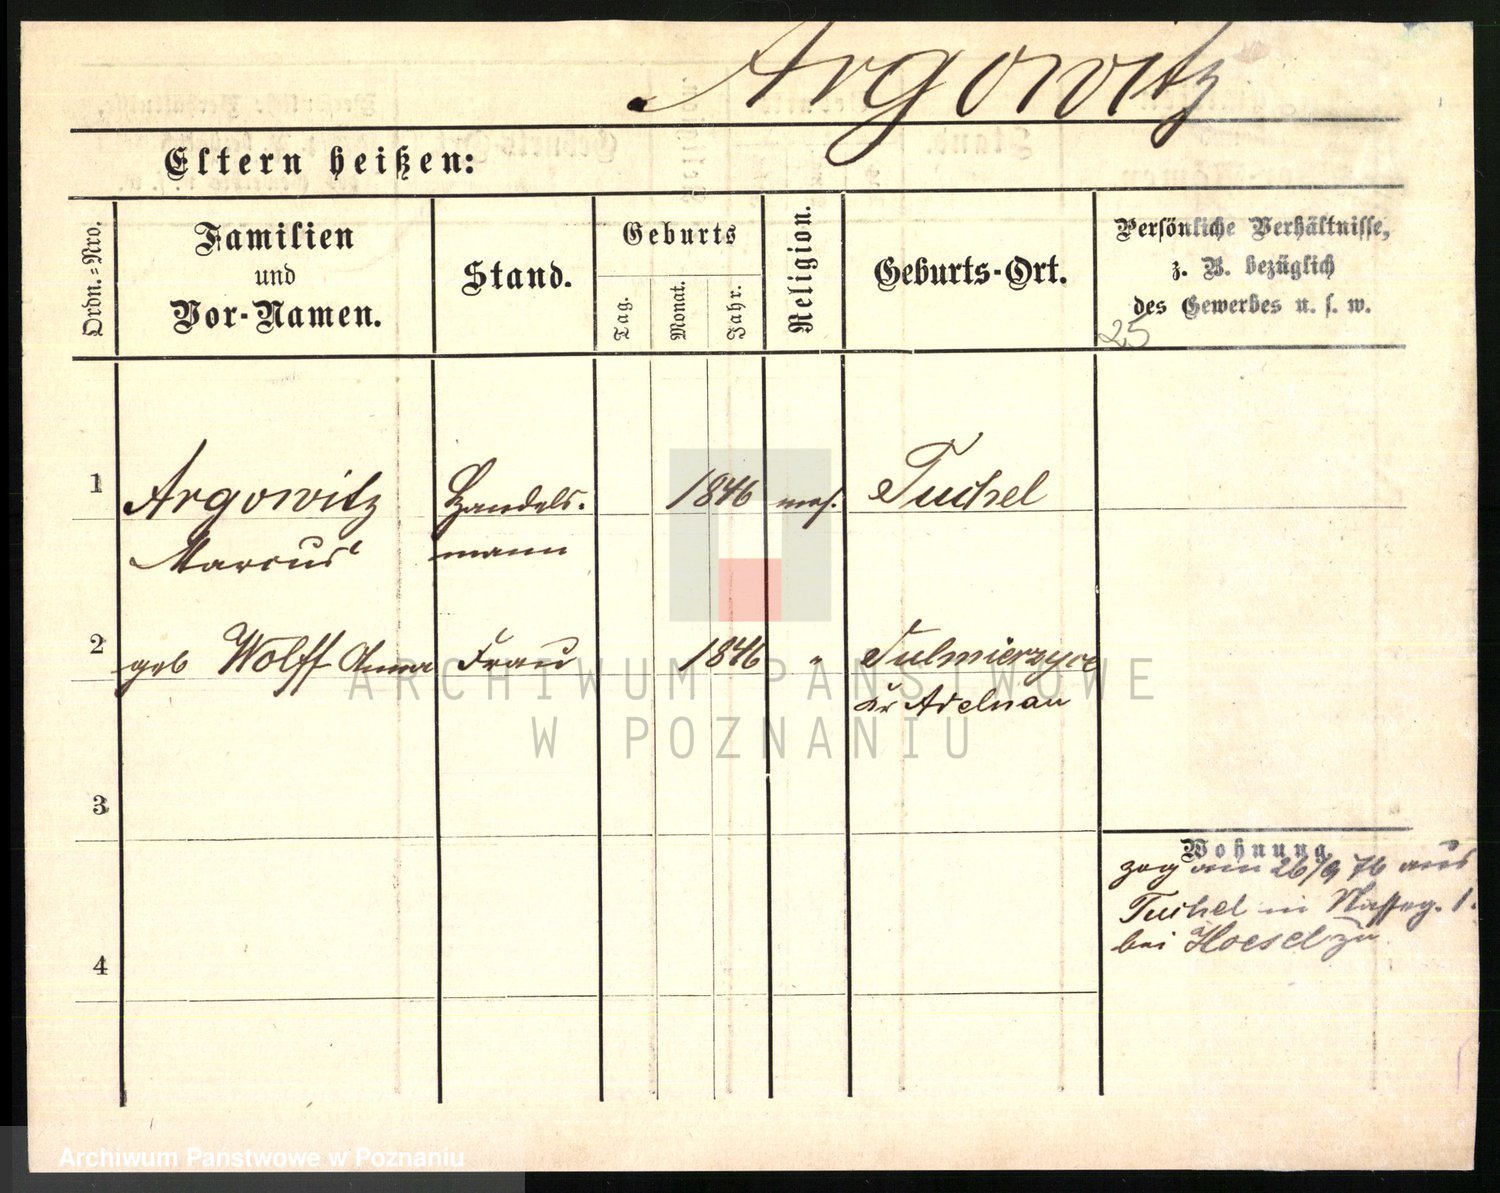 Argowitz
Eltern heißen:
Ordn.=Nro.
Familien
und
Vor-Namen.
Stand.
Geburts
Tag.
Monat.
Jahr.
Religion.
Geburts-Ort.
Persönliche Verhältnisse,
z. B. bezüglich
des Gewerbes u. s. w.
25
1 Argowitz Handels- 1846 mos. Tuchel
Marcus mann
2 geb Wolff Anna Frau 1846 " Sulmierzyce
Kr Adelnau
3
Wohnung
zog am 26/9 76 aus
Tuchel in Wasserg. 1.
bei Hoesel zu
4
ARCHIWUM PAŃSTWOWE
W POZNANIU
Archiwum Państwowe w Poznaniu